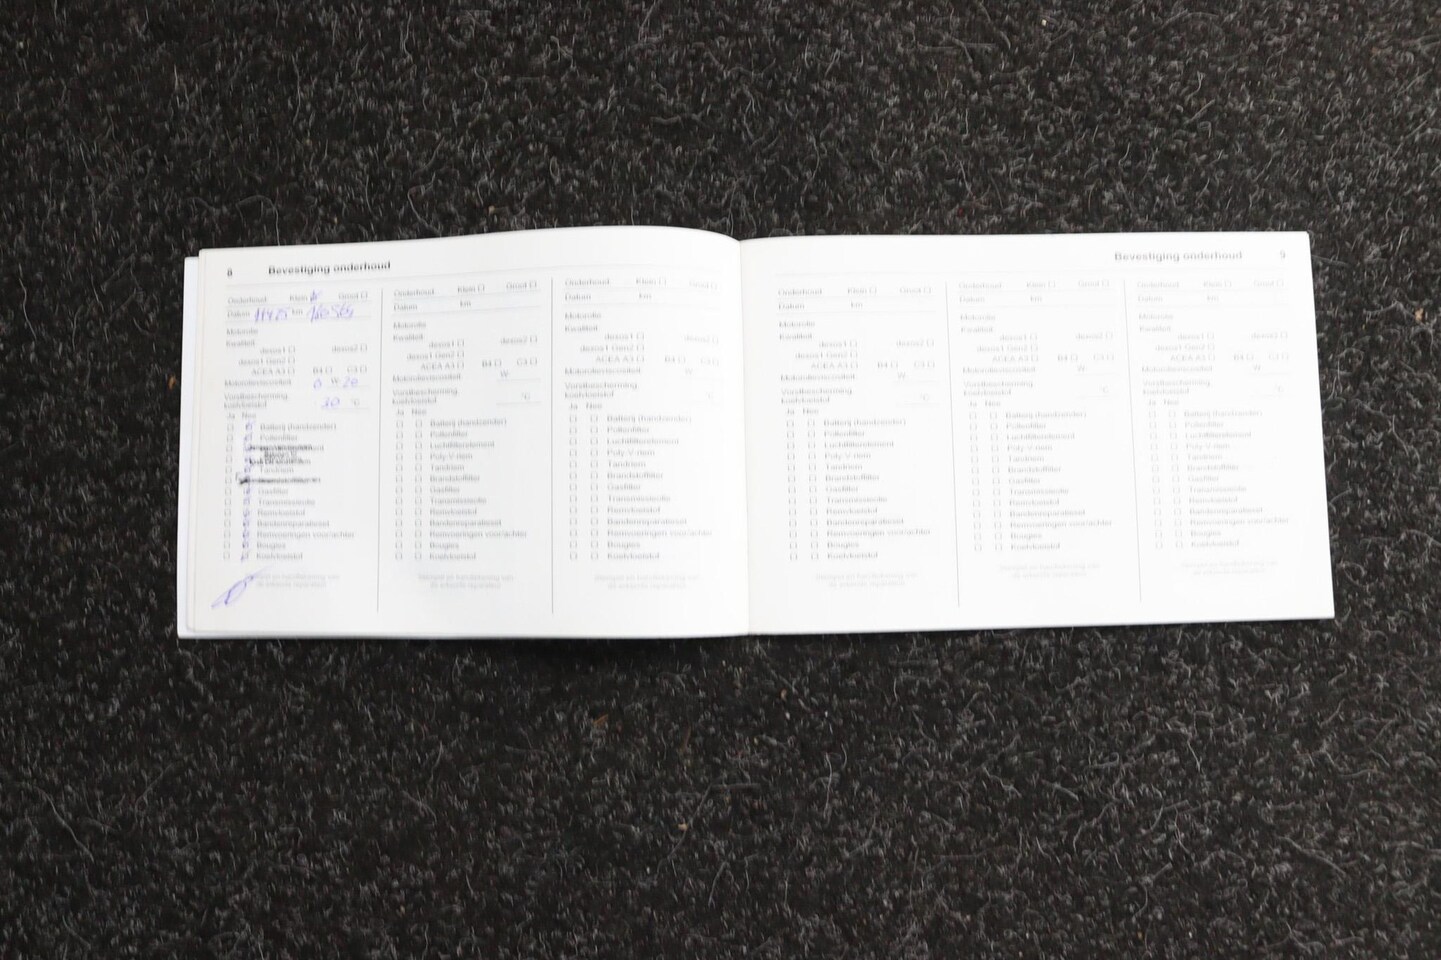 8 Bevestiging onderhoud
Onderhoud Klein Groot
Datum km
Motorolie
Kwaliteit
dexos1 dexos2
dexos1 Gen2
ACEA A3 B4 C3
Motorolieviscositeit 0 W 20
Vorstbescherming
koelvloeistof 30 °C
Ja Nee
Batterij (handzender)
Pollenfilter
Tandriem
Gasfilter
Transmissieolie
Remvloeistof
Bandenreparatieset
Remvoeringen voor/achter
Bougies
Koelvloeistof
Onderhoud Klein Groot
Datum km
Motorolie
Kwaliteit
dexos1 dexos2
dexos1 Gen2
ACEA A3 B4 C3
Motorolieviscositeit W
Vorstbescherming
koelvloeistof °C
Ja Nee
Batterij (handzender)
Pollenfilter
Luchtfilterelement
Poly-V-riem
Tandriem
Brandstoffilter
Gasfilter
Transmissieolie
Remvloeistof
Bandenreparatieset
Remvoeringen voor/achter
Bougies
Koelvloeistof
Onderhoud Klein Groot
Datum km
Motorolie
Kwaliteit
dexos1 dexos2
dexos1 Gen2
ACEA A3 B4 C3
Motorolieviscositeit W
Vorstbescherming
koelvloeistof °C
Ja Nee
Batterij (handzender)
Pollenfilter
Luchtfilterelement
Poly-V-riem
Tandriem
Brandstoffilter
Gasfilter
Transmissieolie
Remvloeistof
Bandenreparatieset
Remvoeringen voor/achter
Bougies
Koelvloeistof
Bevestiging onderhoud 9
Onderhoud Klein Groot
Datum km
Motorolie
Kwaliteit
dexos1 dexos2
dexos1 Gen2
ACEA A3 B4 C3
Motorolieviscositeit W
Vorstbescherming
koelvloeistof °C
Ja Nee
Batterij (handzender)
Pollenfilter
Luchtfilterelement
Poly-V-riem
Tandriem
Brandstoffilter
Gasfilter
Transmissieolie
Remvloeistof
Bandenreparatieset
Remvoeringen voor/achter
Bougies
Koelvloeistof
Onderhoud Klein Groot
Datum km
Motorolie
Kwaliteit
dexos1 dexos2
dexos1 Gen2
ACEA A3 B4 C3
Motorolieviscositeit W
Vorstbescherming
koelvloeistof °C
Ja Nee
Batterij (handzender)
Pollenfilter
Luchtfilterelement
Poly-V-riem
Tandriem
Brandstoffilter
Gasfilter
Transmissieolie
Remvloeistof
Bandenreparatieset
Remvoeringen voor/achter
Bougies
Koelvloeistof
Onderhoud Klein Groot
Datum km
Motorolie
Kwaliteit
dexos1 dexos2
dexos1 Gen2
ACEA A3 B4 C3
Motorolieviscositeit W
Vorstbescherming
koelvloeistof °C
Ja Nee
Batterij (handzender)
Pollenfilter
Luchtfilterelement
Poly-V-riem
Tandriem
Brandstoffilter
Gasfilter
Transmissieolie
Remvloeistof
Bandenreparatieset
Remvoeringen voor/achter
Bougies
Koelvloeistof